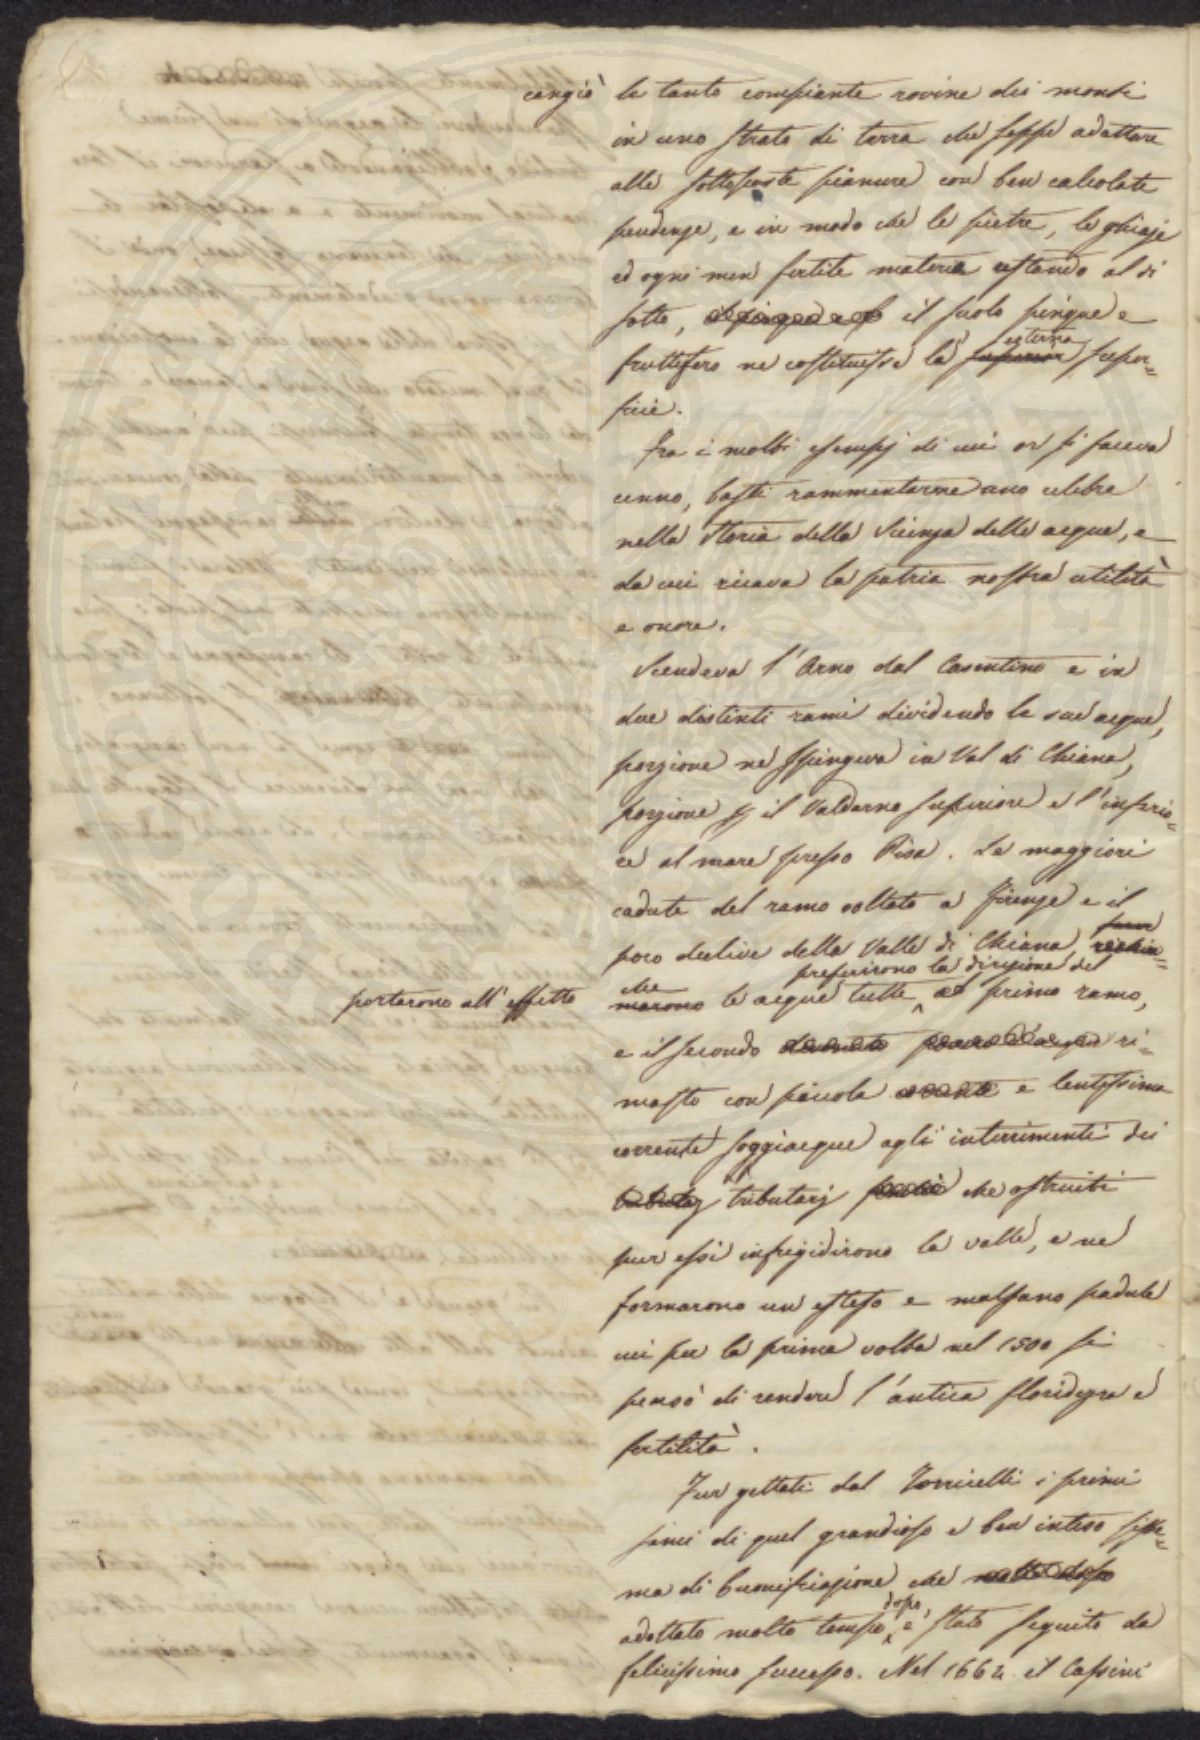 cangiò le tanto compiante rovine dei monti
in uno strato di terra che seppe adattare
alle sottoposte pianure con ben calcolate
pendenze, e in modo che le pietre, le ghiaje
ed ogni men fertile materia restando al di
sotto, il suolo pingue e
fruttifero ne costituisse la superior esterna super=
ficie.
Fra i molti esempj di cui or si faceva
cenno, basti rammentarne uno celebre
nella Storia della Scienza delle acque, e
da cui ricava la patria nostra utilità
e onore.
Scendeva l'Arno dal Casentino e in
due distinti rami dividendo le sue acque,
porzione ne spingeva in Val di Chiana,
porzione p il Valdarno superiore e l'inferio=
re al mare presso Pisa. Le maggiori
cadute del ramo voltato a Firenze e il
poco declive della Valle di Chiana richia=
portarono all'effetto
marono che le acque tutte preferirono la direzione del al primo ramo,
e il secondo ri=
masto con piccola e lentissima
corrente soggiacque agli interrimenti dei
tributarj che ostruiti
pur essi infrigidirono la valle, e ne
formarono un esteso e malsano padule
cui per la prima volta nel 1500 si
pensò di rendere l'antica floridezza e
fertilità.
Fur gettati dal Torricelli i primi
semi di quel grandioso e ben inteso siste=
ma di buonificazione che molto dopo
adottato molto tempo dopo, è stato seguito da
felicissimo successo. Nel 1662 il Cassini